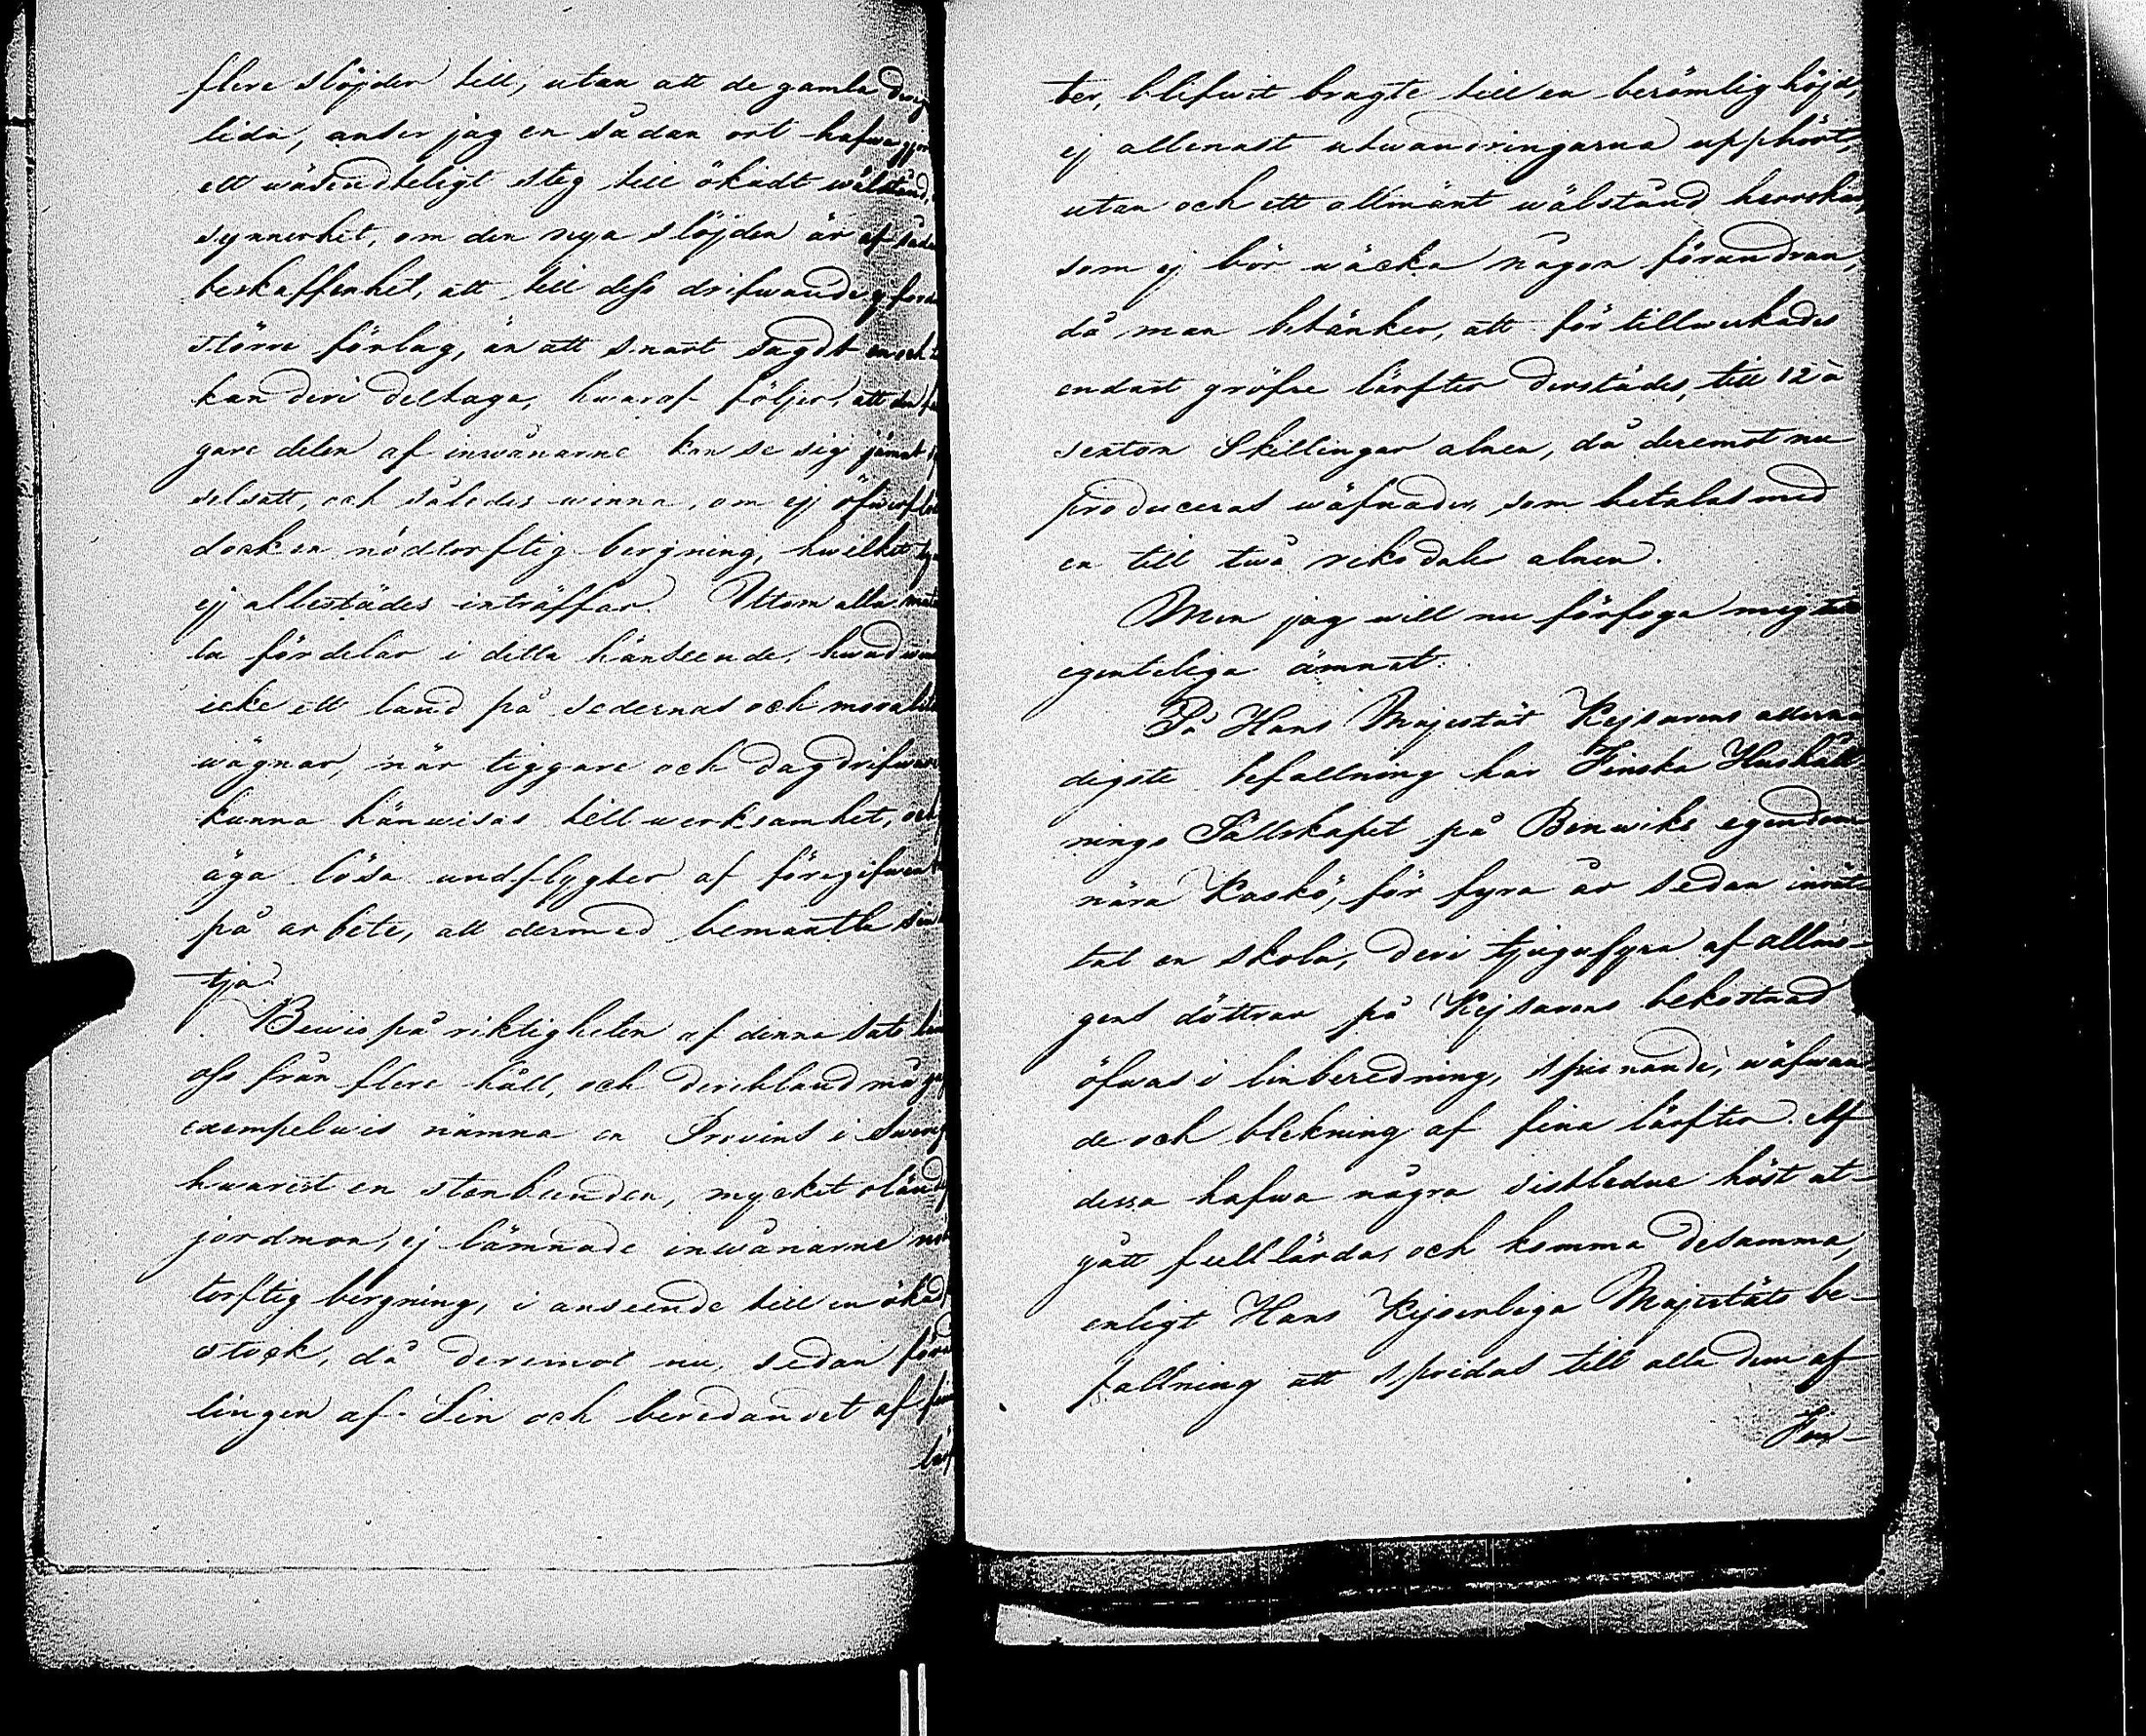 flere slöjder till, utan att de gamla
lida, anser jag en sådan ort hafwa
ett wäsendteligt steg till ökadt wälstånd,
synnerhet, om den nya slöjden är af
beskaffenhet, att till dess drifwande ej
större förlag, än att snart sagdt
kan deri deltaga, hwaraf följer, att
gare delen af inwånarne kan se sig jämt
selsatt, och således winna, om ej
dock en nödtorftig bergning, hwilket
ej allestädes inträffar. Utom alla
la fördelar i detta hänseende, hwad
icke ett land på sedernas och
wägnar, när tiggare och dagdrifware
kunna hänwisas till werksamhet, och
äga lösa undflygter af föregifwen
på arbete, att dermed bemantla sin
tja.
Bewis på riktigheten af denna sats
oss från flere håll, och deribland må
exempelwis nämna en Provins i
hwarest en stenbunden, mycket
jordmon, ej lämnade inwånarne
torftig bergning, i anseende till en
stock, då deremot nu, sedan
lingen af Lin och beredandet af
ter, blifwit bragte till en berömlig höjd,
ej allenast utwandringarna upphört,
utan och ett allmänt wälstånd
som ej bör wäcka någon förundran,
då man betänker, att för tillwerkades
endast gröfre lärfter derstädes, till 12 à
sexton Skillingar alnen, då deremot nu
produceras wäfnader, som betalas med
en till twå riksdaler alnen.
Men jag will nu förfoga mig till
egenteliga ämnet.
På Hans Majestät Kejsarens
digste befallning har Finska Hushåll
nings Sällskapet på Benwiks egendom
nära Kaskö, för fyra år sedan inrät
tat en skola, deri tjugufyra af allmo-
gens döttrar på Kejsarens bekostnad
öfwas i linberedning, spinnande, wäfwan
de och blekning af fina lärfter. Af
dessa hafwa några sistledne höst ut-
gått fullärda, och komma desamma,
enligt Hans Kejserliga Majestäts be-
fallning att spridas till alla dem af
Fin-